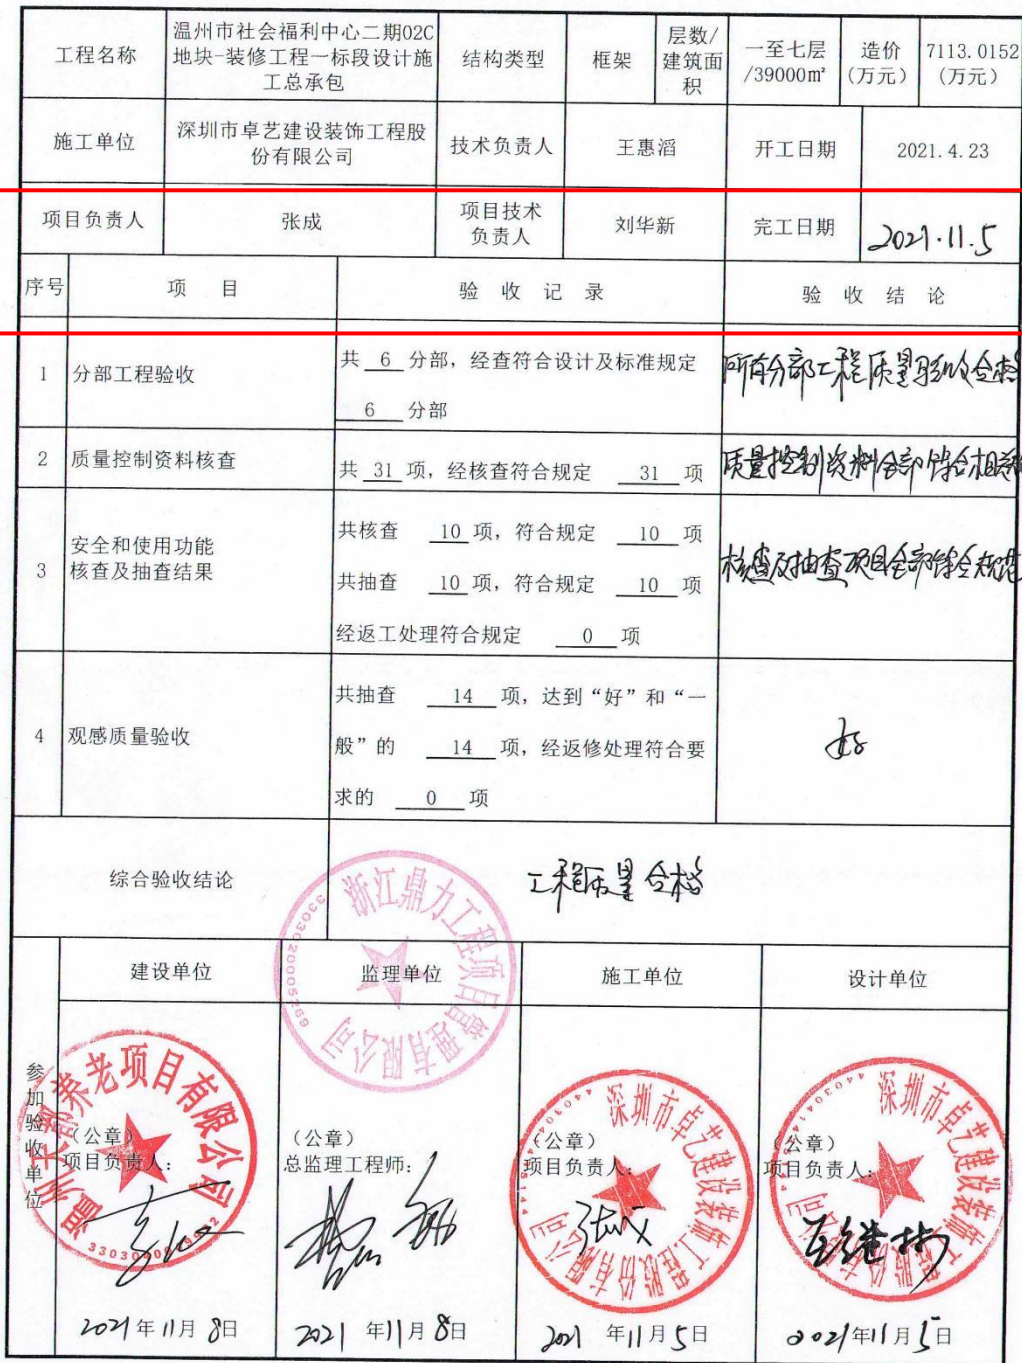 工程名称
温州市社会福利中心二期02C
地块-装修工程一标段设计施
工总承包
结构类型
框架
层数/
建筑面
积
一至七层
/39000㎡
造价
(万元)
7113.0152
(万元)
施工单位
深圳市卓艺建设装饰工程股
份有限公司
技术负责人
王惠滔
开工日期
2021.4.23
项目负责人
张成
项目技术
负责人
刘华新
完工日期
2021.11.5
序号
项 目
验 收 记 录
验 收 结 论
1
分部工程验收
共 6 分部，经查符合设计及标准规定
6 分部
所有分部工程质量验收合格
2
质量控制资料核查
共 31 项，经核查符合规定 31 项
质量控制资料全部符合相关
3
安全和使用功能
核查及抽查结果
共核查 10 项，符合规定 10 项
共抽查 10 项，符合规定 10 项
经返工处理符合规定 0 项
核查及抽查项目全部符合规范
4
观感质量验收
共抽查 14 项，达到“好”和“一
般”的 14 项，经返修处理符合要
求的 0 项
好
综合验收结论
工程质量合格
浙江鼎力工程项目管理有限公司
参加验收单位
建设单位
监理单位
施工单位
设计单位
养老项目有限公司
（公章）
项目负责人：
2021年11月8日
（公章）
总监理工程师：
2021年11月8日
深圳市卓艺建设装饰工程股份有限公司
（公章）
项目负责人：
张成
2021年11月5日
深圳市卓艺建设装饰工程股份有限公司
（公章）
项目负责人：
2021年11月5日